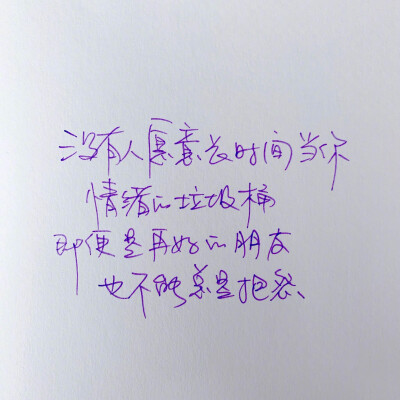 没有人愿意长时间当你
情绪的垃圾桶
即便是再好的朋友
也不能总是抱怨、